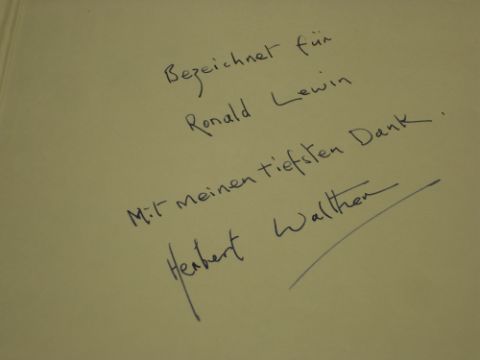 Bezeichnet für
Ronald Lewin
Mit meinen tiefsten Dank.
Herbert Walther